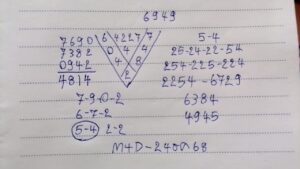 6949
7690
7382
0942
4814
642277
0 4 4
4 8
2
5-4
25-24-22-54
254-225-224
2254-6729
7-9-0-2
6-7-2
5-4 2-2
6384
4945